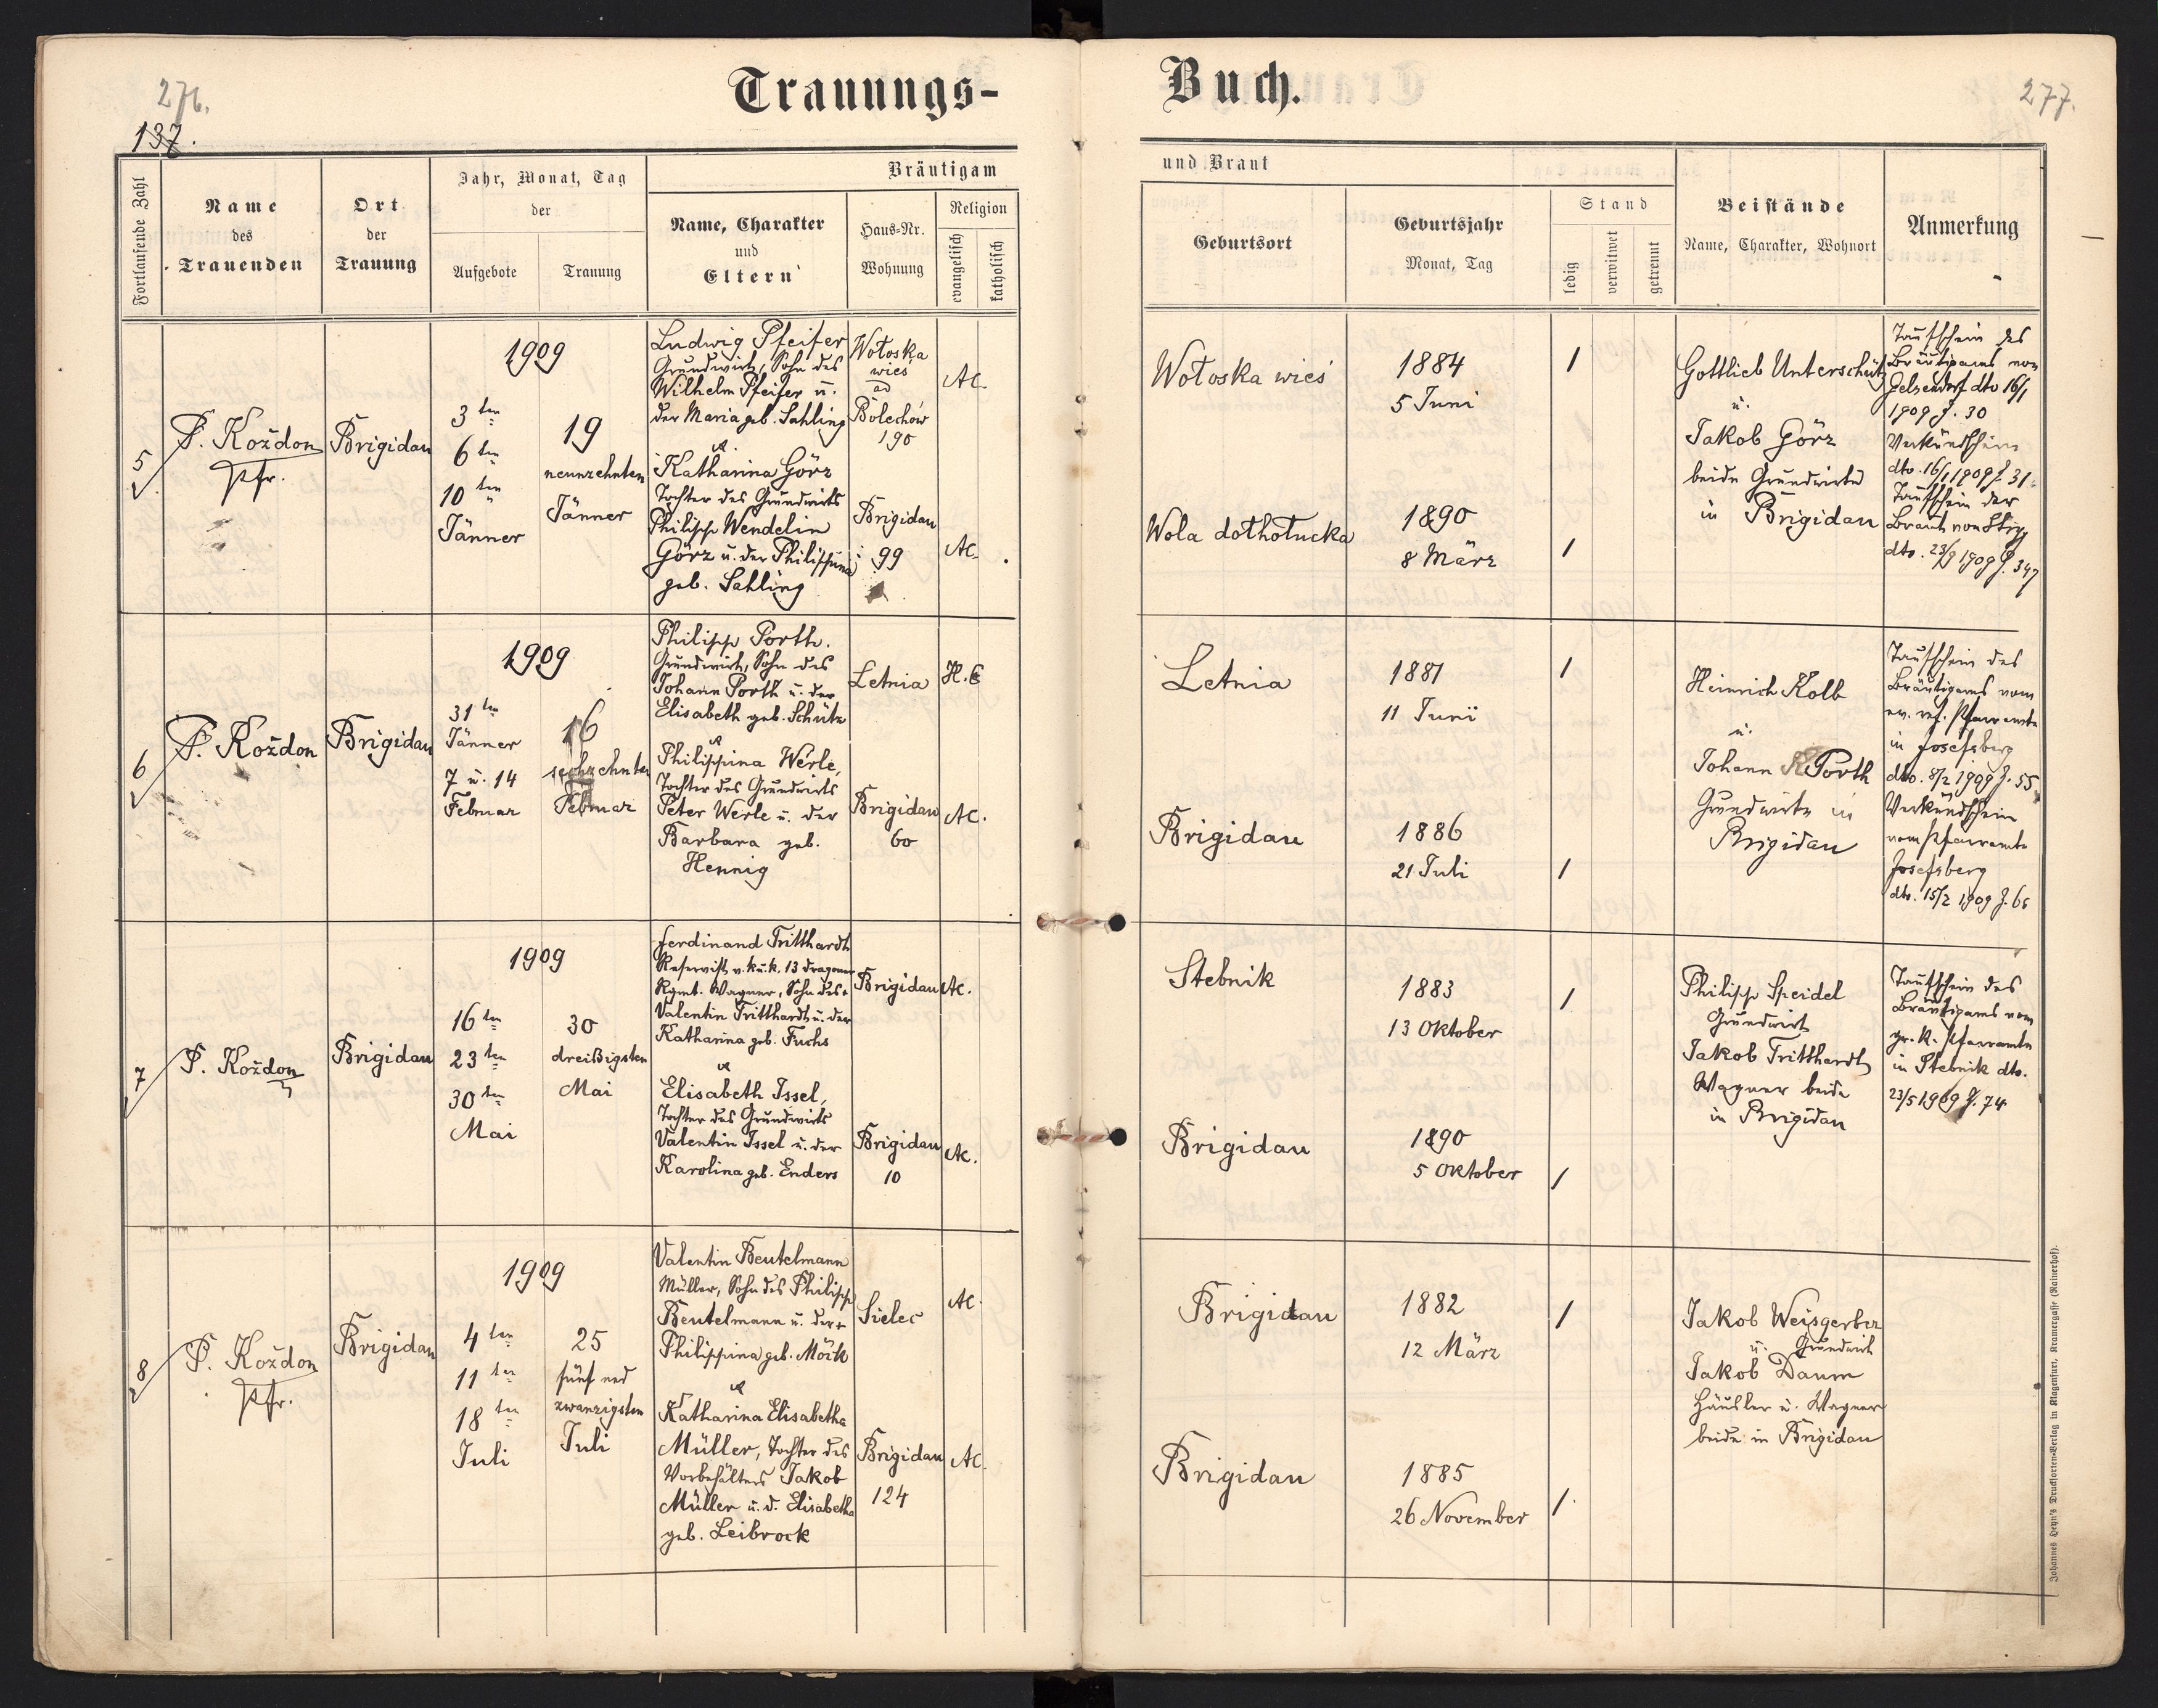 276.
137.
Trauungs-
Buch.
277.
Fortlaufende Zahl
Name
des
Trauenden
Ort
der
Trauung
Jahr, Monat, Tag
der
Aufgebote
Trauung
Bräutigam
Name, Charakter
und
Eltern
Haus-Nr.
Wohnung
Religion
evangelisch
katholisch
und Braut
Geburtsort
Geburtsjahr
Monat, Tag
Stand
ledig
verwitwet
getrennt
Beistände
Name, Charakter, Wohnort
Anmerkung
5
P. Koždon
Pfr.
Brigidau
1909
3 ten
6 ten
10 ten
Jänner
19
neunzehnten
Jänner
Ludwig Pfeifer
Grundwirt, Sohn des
Wilhelm Pfeifer u.
der Maria geb. Sahling
u
Katharina Görz
Tochter des Grundwirts
Philipp Wendelin
Görz u. der Philippina
geb. Sahling
Wołoska
wieś
ad
Bolechów
190
Brigidau
99
AC.
AC.
Wołoska wieś
Wola dołhołucka
1884
5 Juni
1890
8 März
Gottlieb Unterschütz
u.
Jakob Görz
beide Grundwirte
in Brigidau
Taufschein des
Bräutigams von
Gelsendorf dto 16/1
1909 Z. 30
Verkündschein
dto. 16/1 1909 Z. 31.
Taufschein der
Braut von Stryj
dto. 23/9 1909 Z. 347
6
P. Koždon
Brigidau
1909
31 ten
Jänner
7 u. 14
Februar
16
sechzehnten
Februar
Philipp Porth.
Grundwirt, Sohn des
Johann Porth u. der
Elisabeth geb. Schütz
u
Philippina Werle,
Tochter des Grundwirts
Peter Werle u. der
Barbara geb.
Hennig
Letnia
Brigidau
60
H.C
AC.
Letnia
Brigidau
1881
11 Juni
1886
21 Juli
Heinrich Kolb
u.
Johann Porth
Grundwirte in
Brigidau
Taufschein des
Bräutigams vom
ev. ref. Pfarramte
in Josefsberg
dto. 8/2 1909 Z. 55
Verkündschein
vom Pfarramte
Josefsberg
dto. 15/2 1909 Z. 66
7
P. Koždon
Brigidau
1909
16 ten
23 ten
30 ten
Mai
30
dreißigsten
Mai
Ferdinand Tritthardt
Reservist v. k.u.k. 13 Dragoner
Rgmt. Wagner, Sohn des +
Valentin Tritthardt u. der
Katharina geb. Fuchs
u
Elisabeth Issel,
Tochter des Grundwirts
Valentin Issel u. der
Karolina geb. Enders
Brigidau
Brigidau
10
AC.
AC.
Stebnik
Brigidau
1883
13 Oktober
1890
5 Oktober
Philipp Speidel
Grundwirt
Jakob Tritthardt
Wagner beide
in Brigidau
Taufschein des
Bräutigams vom
gr. k. Pfarramte
in Stebnik dto.
23/5 1909 Z. 74
8
P. Koždon
Pfr.
Brigidau
1909
4 ten
11 ten
18 ten
Juli
25
fünf und
zwanzigsten
Juli
Valentin Beutelmann
Müller, Sohn des Philipp
Beutelmann u. der +
Philippina geb. Möck
u
Katharina Elisabetha
Müller, Tochter des
Vorbehälters Jakob
Müller u. d. Elisabetha
geb. Leibrock
Sielec
Brigidau
124
AC.
AC.
Brigidau
Brigidau
1882
12 März
1885
26 November
Jakob Weisgerber
u. Grundwirt
Jakob Daum
Häusler u. Wagner
beide in Brigidau
Johannes Heyn's Drucksorten-Verlag in Klagenfurt, Kramergasse (Rainerhof).